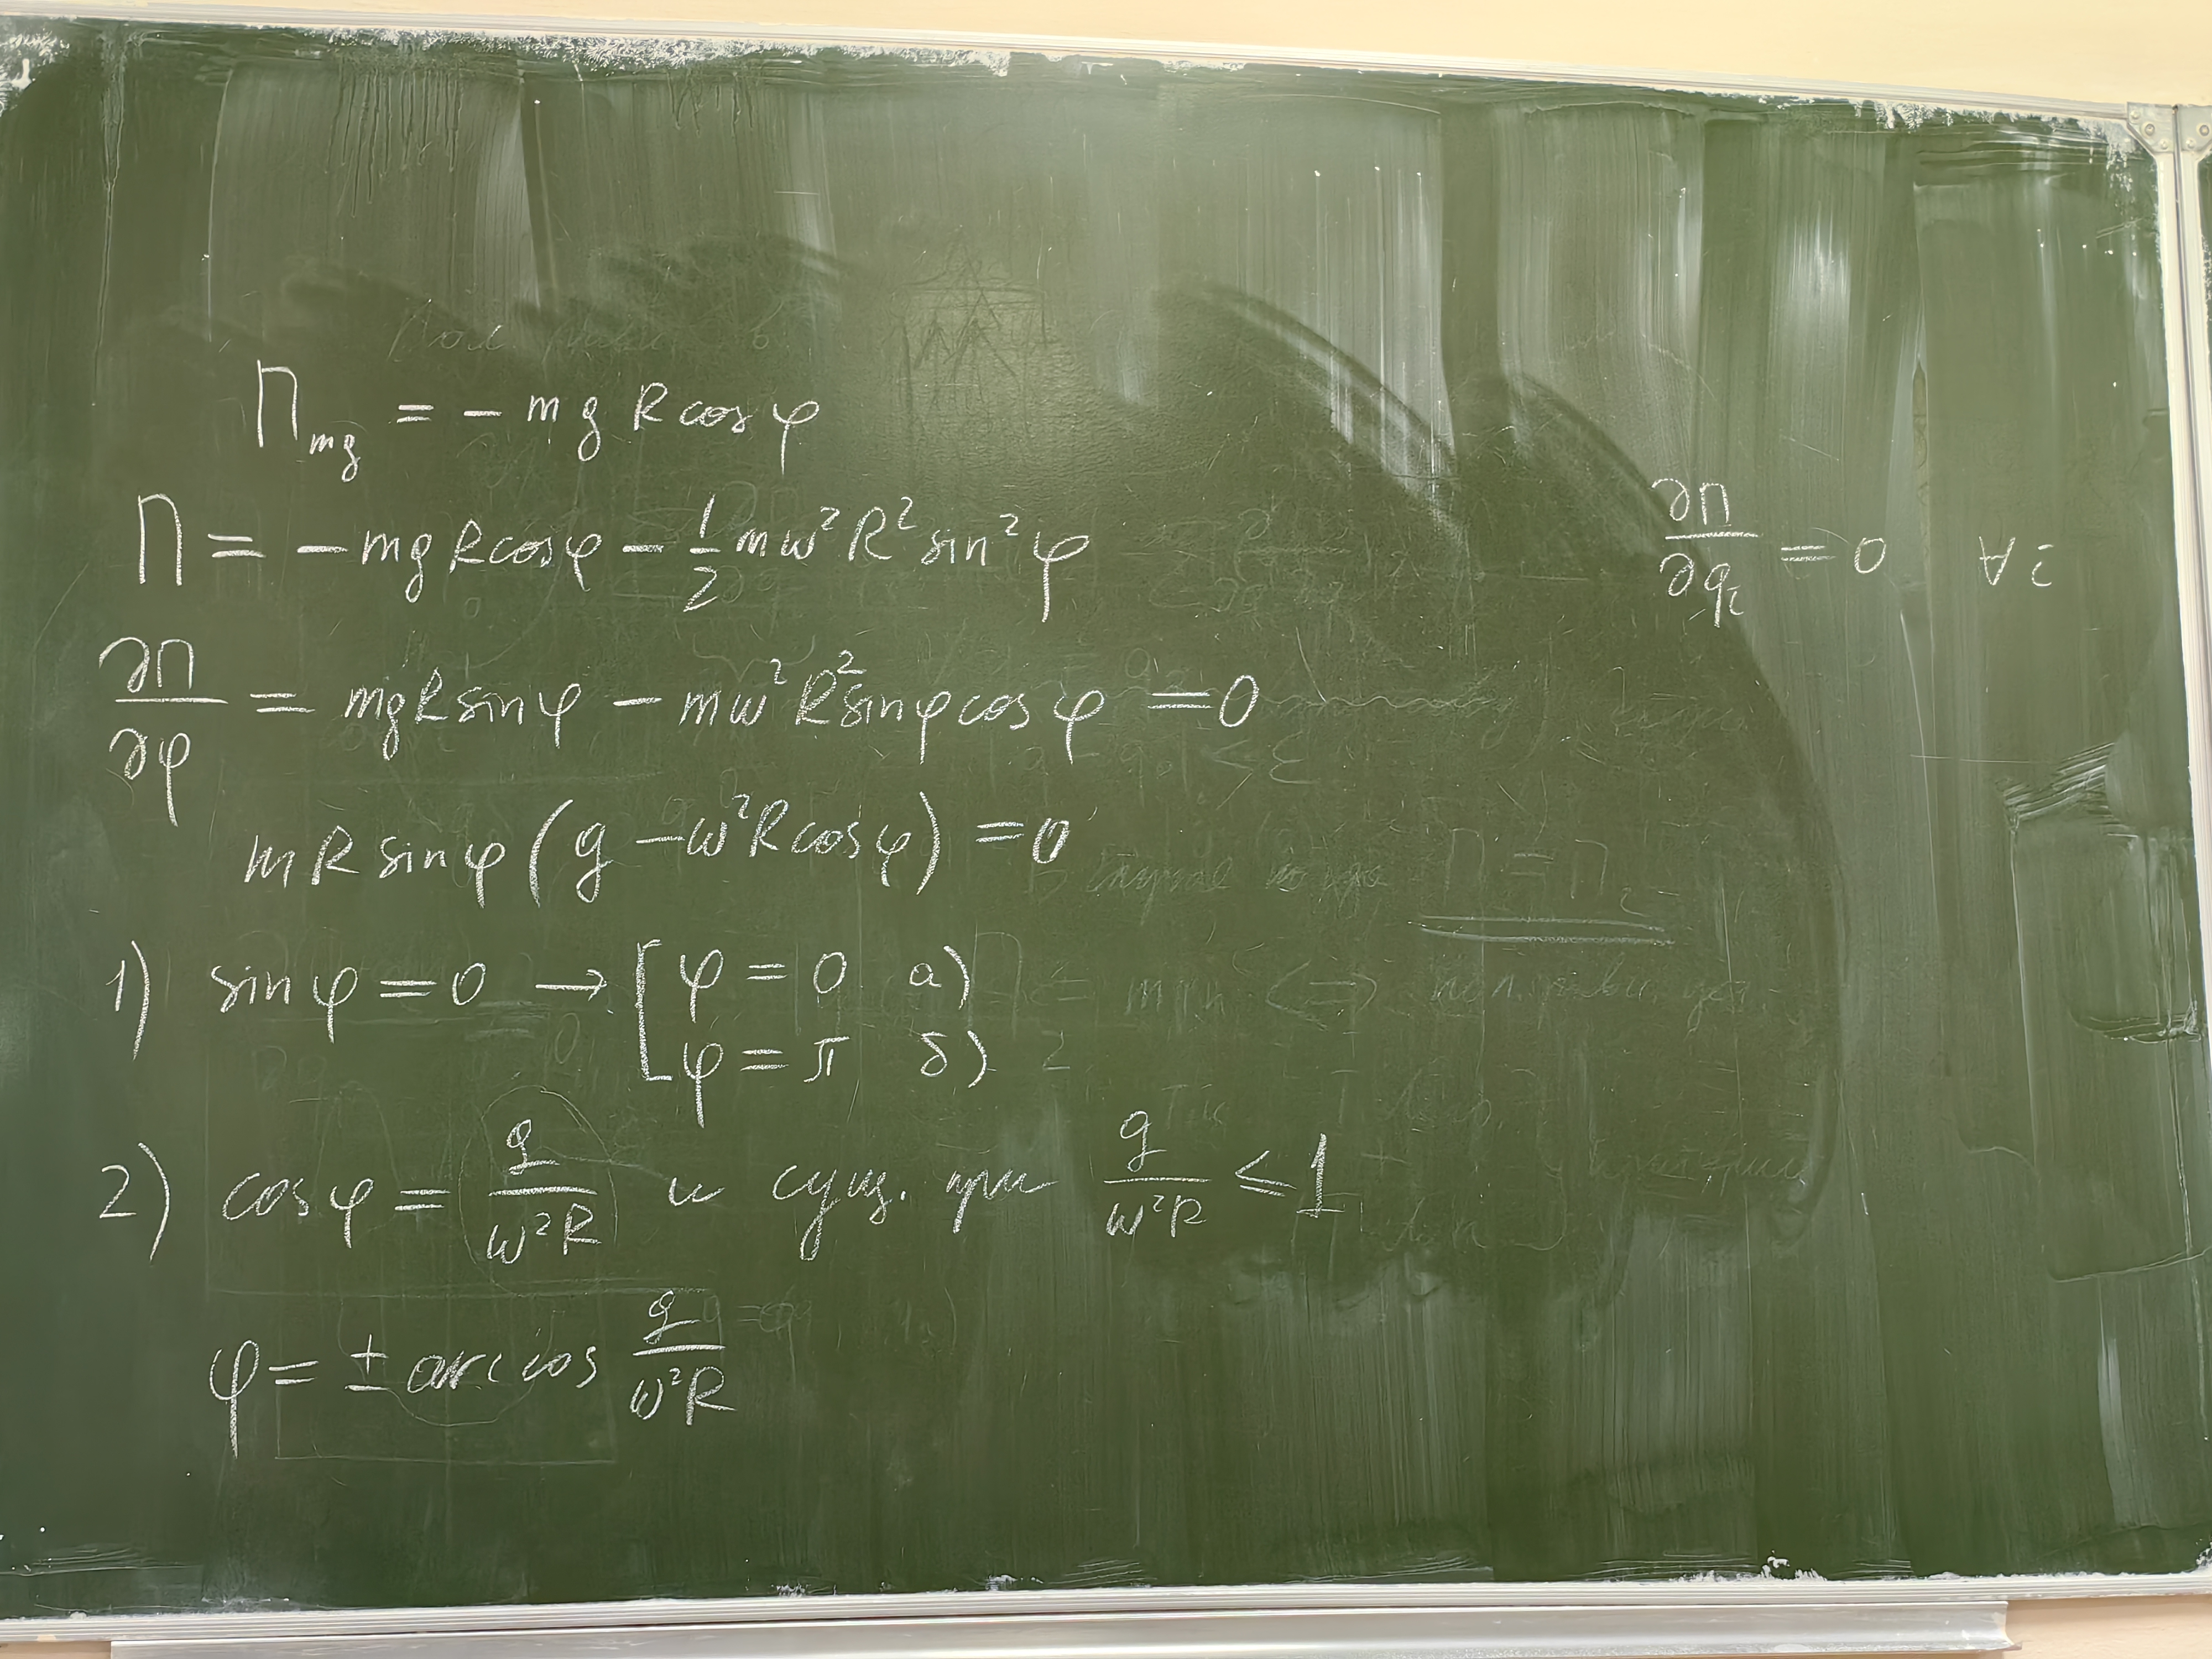 П_mg = - mg R cos φ
П = - mg R cos φ - 1/2 mω² R² sin² φ
∂П/∂q_i = 0 ∀i
∂П/∂φ = mg R sin φ - mω² R² sin φ cos φ = 0
mR sin φ (g - ω² R cos φ) = 0
1) sin φ = 0 → [ φ = 0 а)
φ = π б)
2) cos φ = g/ω²R и сущ. при g/ω²R ≤ 1
φ = ± arccos g/ω²R